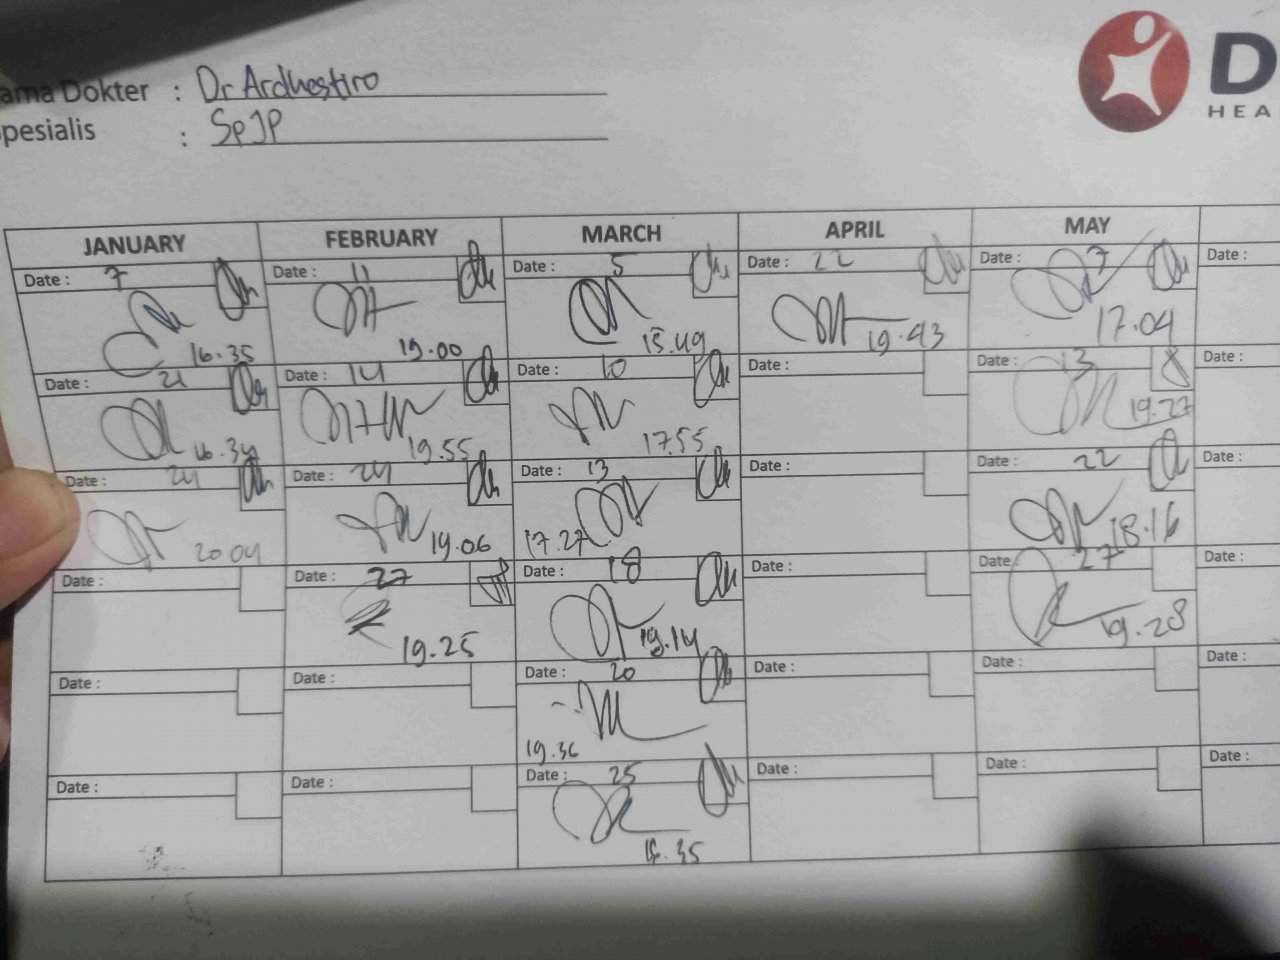 ama Dokter : Dr Ardhestiro
pesialis : SpJP
D
HEA
JANUARY FEBRUARY MARCH APRIL MAY
Date : 7 Date : 11 Date : 5 Date : 22 Date : 7 Date :
16.35 19.00 15.49 19.43 17.04
Date : 21 Date : 14 Date : 10 Date : Date : 13 Date :
16.34 19.55 17.55 19.27
Date : 24 Date : 24 Date : 13 Date : Date : 22 Date :
20 04 19.06 17.27 18.16
Date : Date : 27 Date : 18 Date : Date : 27 Date :
19.25 19.14 19.28
Date : Date : Date : 20 Date : Date : Date :
19.36
Date : Date : Date : 25 Date : Date : Date :